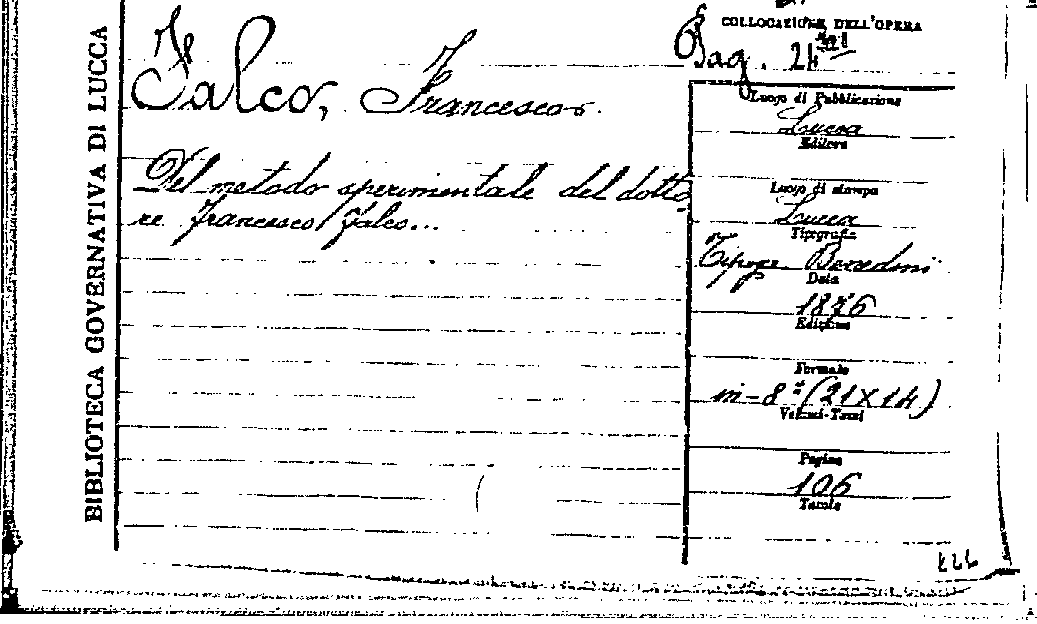 BIBLIOTECA GOVERNATIVA DI LUCCA
Falco, Francesco.
Del metodo sperimentale del dotto-
re Francesco Falco...
COLLOCAZIONE DELL'OPERA
Bag. 24
Luogo di Pubblicazione
Lucca
Editore
Luogo di stampa
Lucca
Tipografia
Tipogr. Benedini
Data
1876
Edizione
Formato
in-8° (21X14)
Volumi-Tomi
Pagine
106
Tavole